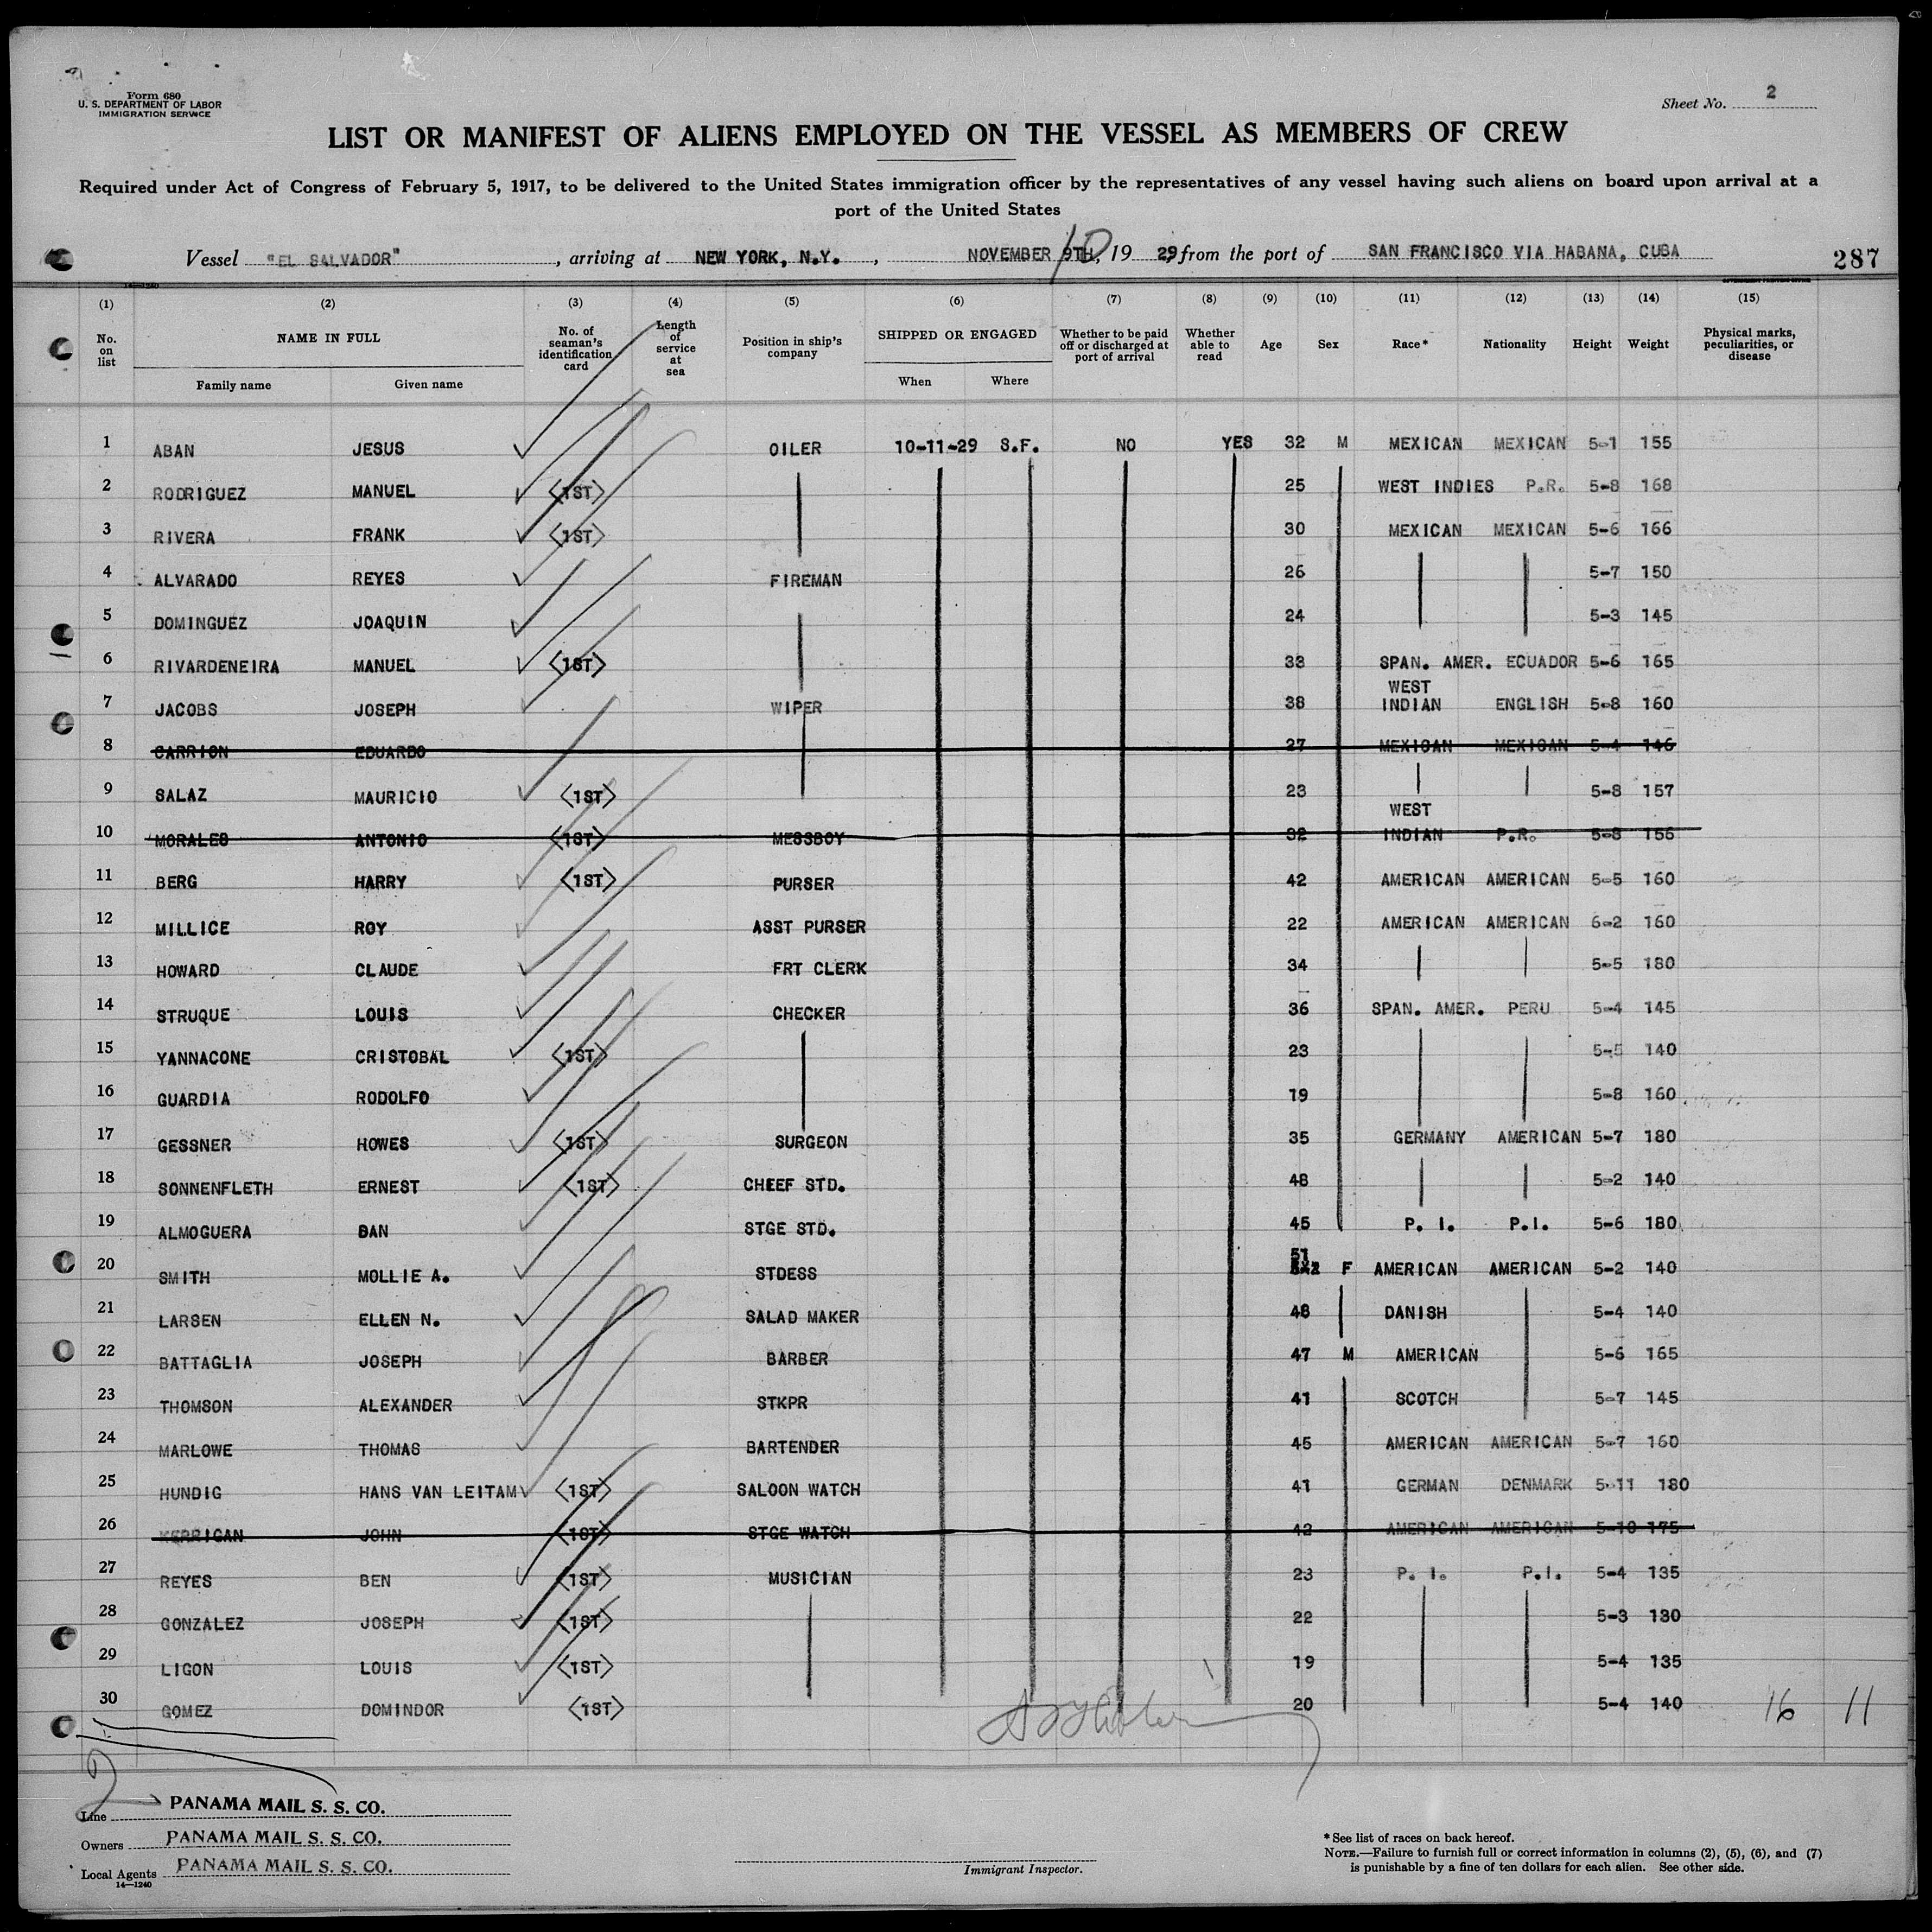 Form 680
U. S. DEPARTMENT OF LABOR
IMMIGRATION SERVICE
Sheet No. 2
LIST OR MANIFEST OF ALIENS EMPLOYED ON THE VESSEL AS MEMBERS OF CREW
Required under Act of Congress of February 5, 1917, to be delivered to the United States immigration officer by the representatives of any vessel having such aliens on board upon arrival at a
port of the United States
Vessel "EL SALVADOR", arriving at NEW YORK, N.Y., NOVEMBER 9TH, 10 19 29, from the port of SAN FRANCISCO VIA HABANA, CUBA 287
(1) (2) (3) (4) (5) (6) (7) (8) (9) (10) (11) (12) (13) (14) (15)
No. on list NAME IN FULL No. of seaman's identification card Length of service at sea Position in ship's company SHIPPED OR ENGAGED Whether to be paid off or discharged at port of arrival Whether able to read Age Sex Race* Nationality Height Weight Physical marks, peculiarities, or disease
Family name Given name When Where
1 ABAN JESUS OILER 10-11-29 S.F. NO YES 32 M MEXICAN MEXICAN 5-1 155
2 RODRIGUEZ MANUEL (1ST) 25 WEST INDIES P.R. 5-8 168
3 RIVERA FRANK (1ST) 30 MEXICAN MEXICAN 5-6 166
4 ALVARADO REYES FIREMAN 26 5-7 150
5 DOMINGUEZ JOAQUIN 24 5-3 145
6 RIVARDENEIRA MANUEL (1ST) 33 SPAN. AMER. ECUADOR 5-6 165
7 JACOBS JOSEPH WIPER 38 WEST INDIAN ENGLISH 5-8 160
8 CARRION EDUARDO 27 MEXICAN MEXICAN 5-4 146
9 SALAZ MAURICIO (1ST) 23 5-8 157
10 MORALES ANTONIO (1ST) MESSBOY 32 WEST INDIAN P.R. 5-8 156
11 BERG HARRY (1ST) PURSER 42 AMERICAN AMERICAN 5-5 160
12 MILLICE ROY ASST PURSER 22 AMERICAN AMERICAN 6-2 160
13 HOWARD CLAUDE FRT CLERK 34 5-5 180
14 STRUQUE LOUIS CHECKER 36 SPAN. AMER. PERU 5-4 145
15 YANNACONE CRISTOBAL (1ST) 23 5-5 140
16 GUARDIA RODOLFO 19 5-8 160
17 GESSNER HOWES (1ST) SURGEON 35 GERMANY AMERICAN 5-7 180
18 SONNENFLETH ERNEST (1ST) CHEEF STD. 48 5-2 140
19 ALMOGUERA DAN STGE STD. 45 P. I. P.I. 5-6 180
20 SMITH MOLLIE A. STDESS 51 F AMERICAN AMERICAN 5-2 140
21 LARSEN ELLEN N. SALAD MAKER 48 DANISH 5-4 140
22 BATTAGLIA JOSEPH BARBER 47 M AMERICAN 5-6 165
23 THOMSON ALEXANDER STKPR 41 SCOTCH 5-7 145
24 MARLOWE THOMAS BARTENDER 45 AMERICAN AMERICAN 5-7 160
25 HUNDIG HANS VAN LEITAM (1ST) SALOON WATCH 41 GERMAN DENMARK 5-11 180
26 KERRIGAN JOHN (1ST) STGE WATCH 42 AMERICAN AMERICAN 5-10 175
27 REYES BEN (1ST) MUSICIAN 23 P. I. P.I. 5-4 135
28 GONZALEZ JOSEPH (1ST) 22 5-3 130
29 LIGON LOUIS (1ST) 19 5-4 135
30 GOMEZ DOMINDOR (1ST) 20 5-4 140 16 11
Line PANAMA MAIL S. S. CO.
Owners PANAMA MAIL S. S. CO.
Local Agents PANAMA MAIL S. S. CO.
14—1240
Immigrant Inspector.
*See list of races on back hereof.
NOTE.—Failure to furnish full or correct information in columns (2), (5), (6), and (7)
is punishable by a fine of ten dollars for each alien. See other side.